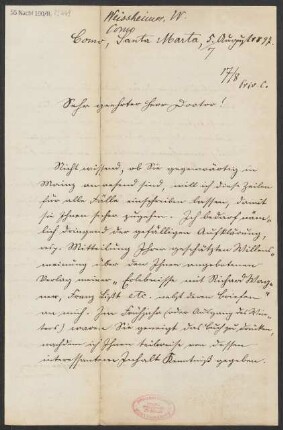 55 Nachl 100/B,
Weissheimer, W.
Comp
Como, Santa Marta, 5. August 1897.
17/8
Sehr geehrter Herr Doctor!
Nicht wissend, ob Sie gegenwärtig in
Mainz anwesend sind, will ich diese Zeilen
für alle Fälle einschreiben lassen, damit
sie Ihnen sicher zugehen. Ich bedarf näm-
lich dringend der gefälligen Aufklärung,
resp. Mitteilung Ihrer geschätzten Willens-
meinung über den Ihnen angebotenen
Verlag meiner „Erlebnisse mit Richard Wag-
ner, Franz Liszt etc. nebst deren Briefen"
an mich. Im Frühjahr (oder Ausgang des Win-
ters) waren Sie geneigt das Buch zu drucken,
nachdem ich Ihnen teilweise von dessen
interessantem Inhalt Kenntniß gegeben.